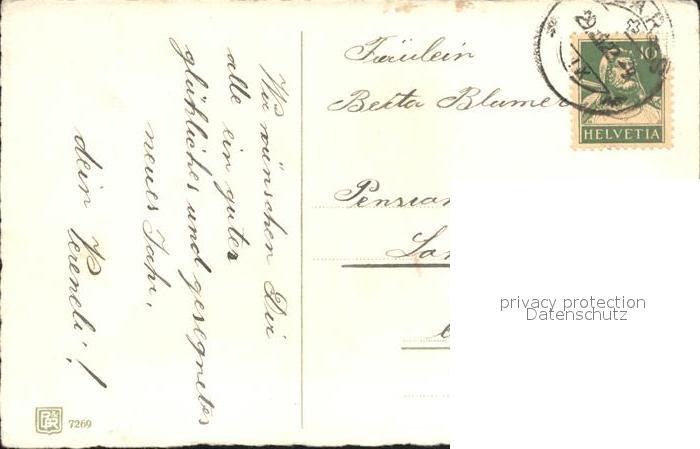 Wir wünschen Dir
alle ein gutes
glückliches und gesegnetes
neues Jahr.
dein Vreneli!
Fräulein
Berta Blumer
Pension
10
HELVETIA
privacy protection
Datenschutz
7269